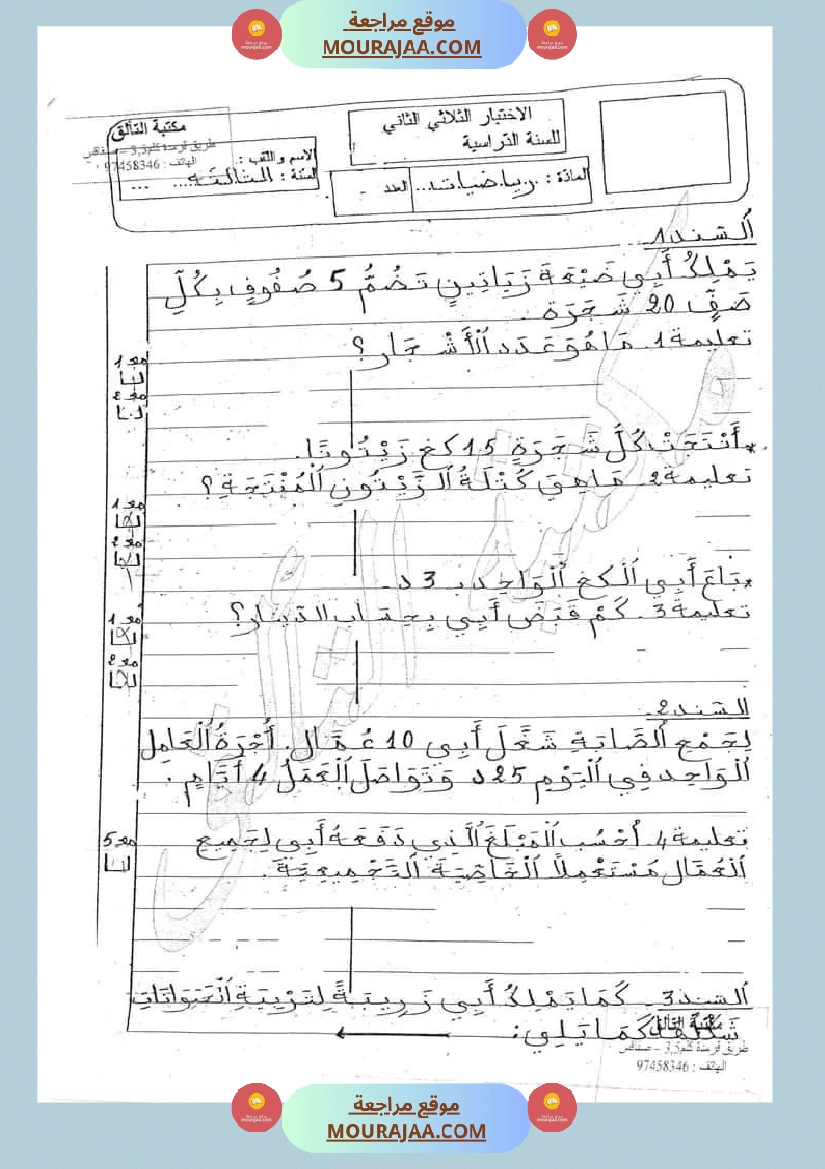 موقع مراجعة
MOURAJAA.COM
الاختبار الثلاثي الثاني
للسنة الدراسية
مكتبة التألق
طريق قرمدة كلم3,5 – صفاقس
الهاتف : 97458346
الاسم و اللقب :
السنة : الثالثة
المادة : رياضيات
العدد
السند1
يَمْلِكُ أَبِي ضَيْعَةَ زَيَاتِينٍ تَضُمُّ 5 صُفُوفٍ بِكُلِّ
صَفٍّ 20 شَجَرَة .
تعليمة1. مَا هُوَ عَدَد ٱلْأَشْجَار؟
مع1
مع2
* أَنْتَجَتْ كُلُّ شَجَرَةٍ 15 كغ زَيْتُونًا.
تعليمة2. مَا هِيَ كُتْلَةُ الزَّيْتُونِ ٱلْمُنْتَجَةِ؟
مع1
مع2
* بَاعَ أَبِي ٱلْكغ ٱلْوَاحِد بـ 3 د.
تعليمة3. كَمْ قَبَضَ أَبِي بِحِسَابِ الدّينار؟
مع1
مع2
السند2.
لِجَمْعِ ٱلصَّابَةِ شَغَّلَ أَبِي 10 عُمَّالٍ. أُجْرَةُ ٱلْعَامِلِ
ٱلْوَاحِد فِي ٱلْيَوْمِ 25 د وَتَوَاصَلَ ٱلْعَمَلُ 4 أَيَّامٍ .
تعليمة4. اُحْسُب ٱلْمَبْلَغَ ٱلَّذِي دَفَعَهُ أَبِي لِجَمِيعِ
ٱلْعُمَّال مُسْتَعْمِلاً ٱلْخَاصِّيَةَ ٱلتَّجْمِيعِيَّةَ.
مع5
ٱلسند3. كَمَا يَمْلِكُ أَبِي زَرِيبَةً لِتَرْبِيَةِ ٱلْحَيَوَانَاتِ
شَكْلُهَا كَمَا يَلِي:
مكتبة التألق
طريق قرمدة كلم3,5 – صفاقس
الهاتف : 97458346
موقع مراجعة
MOURAJAA.COM